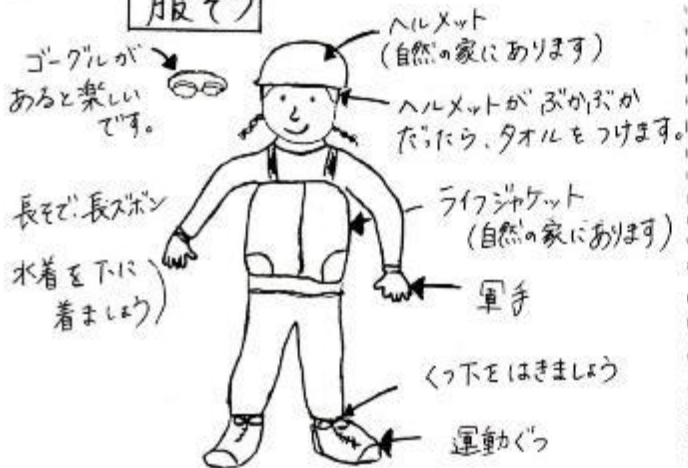 服そう
ヘルメット
(自然の家にあります)
ゴーグルが
あると楽しい
です。
ヘルメットが ぶかぶか
だったら、タオルをつけます。
長そで、長ズボン
水着を下に
着ましょう
ライフジャケット
(自然の家にあります)
軍手
くつ下をはきましょう
運動ぐつ